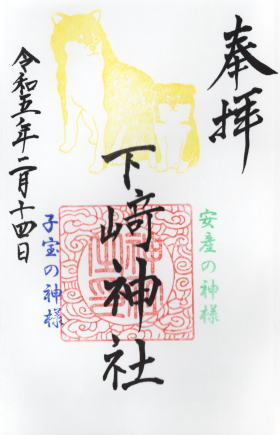 奉拝
安産の神様
下﨑神社
子宝の神様
令和五年二月十四日